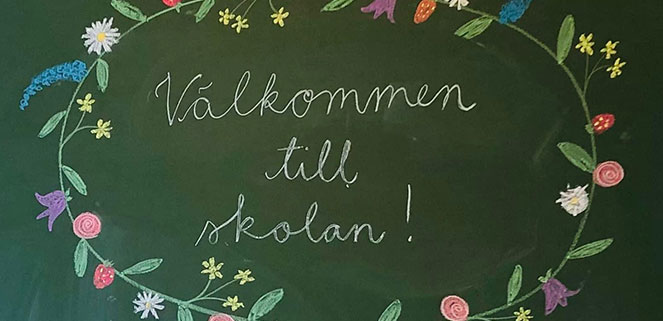 Välkommen
till
skolan!